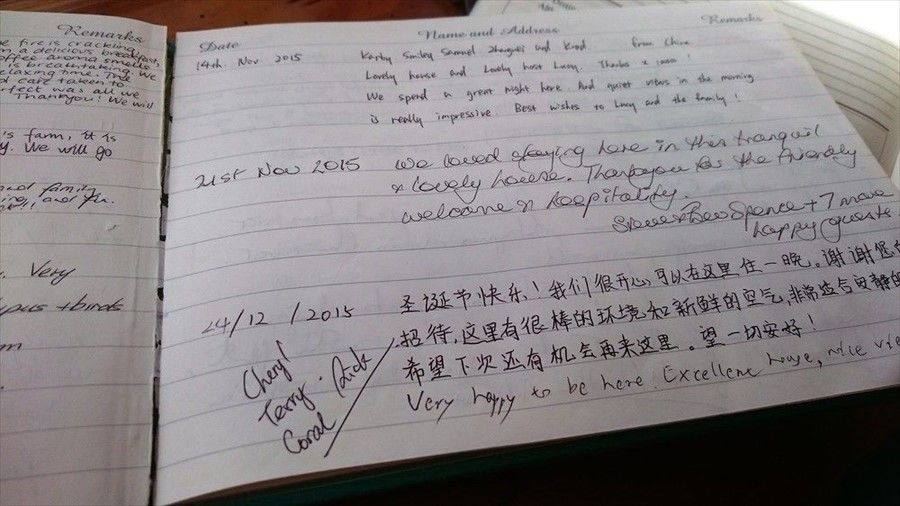 Remarks
fire is cracking
a delicious breakfast,
coffee aroma smells
is breathtaking. We
relaxing time. The
care taken to
perfect was all we
Thankyou! We will
farm, it is
We will go
and family
Very
+ birds
Date Name and Address Remarks
14th. Nov 2015 Smiley Samuel and from China
Lovely house and Lovely host Lucy. Thanks x 1000!
We spend a great night here. And quiet views in the morning
is really impressive. Best wishes to Lucy and the family!
21st Nov 2015 We loved staying here in this tranquil
& lovely house. Thankyou for the friendly
welcome & hospitality.
Spence + 7 more
happy guests.
24/12/2015 圣诞节快乐!我们很开心,可以在这里住一晚。谢谢您的
招待,这里有很棒的环境和新鲜的空气,非常
希望下次还有机会再来这里。望一切安好!
Very happy to be here. Excellent house, nice
Cheryl
Terry. Rick
Coral